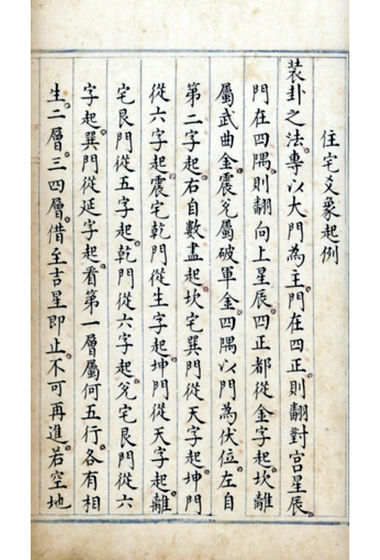 住宅爻象起例
裝卦之法專以大門為主門在四正則翻對宮星辰
門在四隅則翻向上星辰四正都從金字起坎離
屬武曲金震兌屬破軍金四隅以門為伏位左自
第二字起右自數盡起坎宅巽門從天字起坤門
從六字起震宅乾門從生字起坤門從天字起離
宅艮門從五字起乾門從六字起兌宅艮門從六
字起巽門從延字起看第一層屬何五行各有相
生二層三四層借至吉星即止不可再進若空地